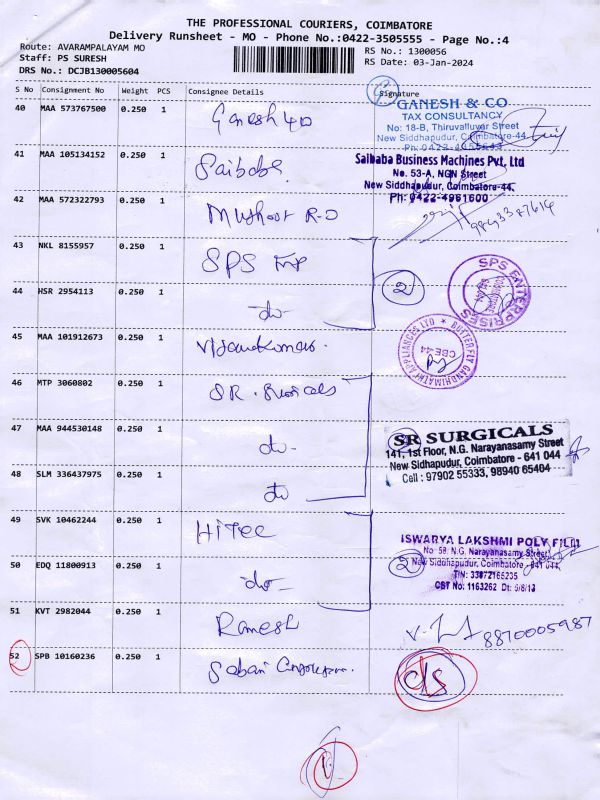 THE PROFESSIONAL COURIERS, COIMBATORE
Delivery Runsheet - MO - Phone No.:0422-3505555 - Page No.:4
Route: AVARAMPALAYAM MO
Staff: PS SURESH
DRS No.: DCJB130005604
RS No.: 1300056
RS Date: 03-Jan-2024
S No Consignment No Weight PCS Consignee Details Signature
40 MAA 573767500 0.250 1 Ganesh
GANESH & CO
TAX CONSULTANCY
No: 18-B, Thiruvalluvar Street
New Siddhapudur, Coimbatore-44
41 MAA 105134152 0.250 1 Saibaba
Saibaba Business Machines Pvt, Ltd
No. 53-A, NGN Street
New Siddhapudur, Coimbatore-44.
Ph: 0422-4961600
42 MAA 572322793 0.250 1
43 NKL 8155957 0.250 1 SPS
2
SPS ENTERPRISES
44 HSR 2954113 0.250 1 do-
45 MAA 101912673 0.250 1 Vijayakumar.
BUTTERFLY GANDHIMATHI APPLIANCES LTD
CBE-44
46 MTP 3060802 0.250 1 SR.
47 MAA 944530148 0.250 1 do-
SR SURGICALS
141, 1st Floor, N.G. Narayanasamy Street
New Sidhapudur, Coimbatore - 641 044
Cell : 97902 55333, 98940 65404
48 SLM 336437975 0.250 1 do
49 SVK 10462244 0.250 1 HiTec
ISWARYA LAKSHMI POLY FILM
No 59, N.G. Narayanasamy Street
New Siddhapudur, Coimbatore - 641 044.
TIN: 33872165235
CST No: 1163262 Dt: 9/8/13
2
50 EDQ 11800913 0.250 1 do-
51 KVT 2982044 0.250 1 Ramesh
8870005987
52 SPB 10160236 0.250 1 Sabari